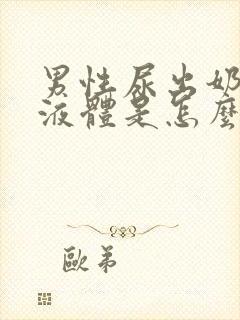 男性尿出奶
液體是怎麼
歐弟